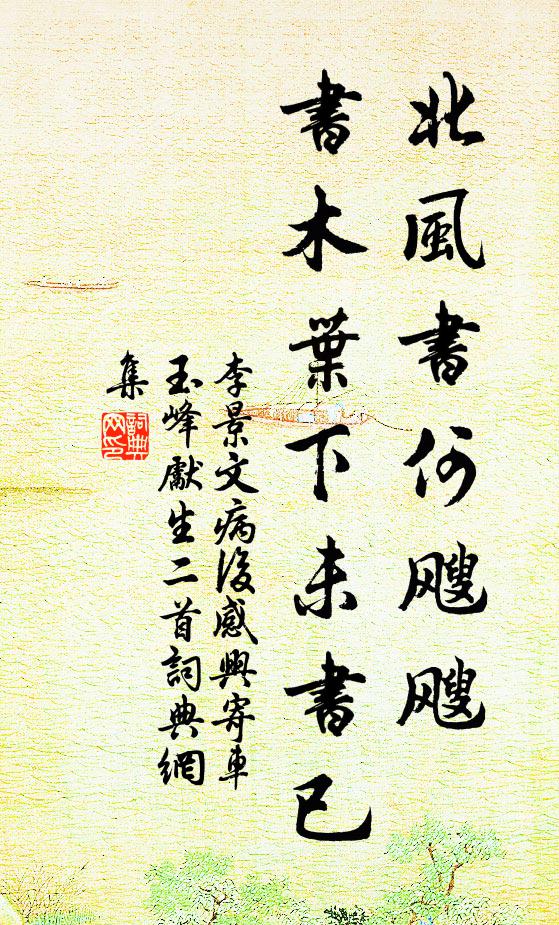 北風書何飀飀
書木葉下未書已
李景文病後感興寄車
玉峰獻生二首詞典網
集
詞典網印